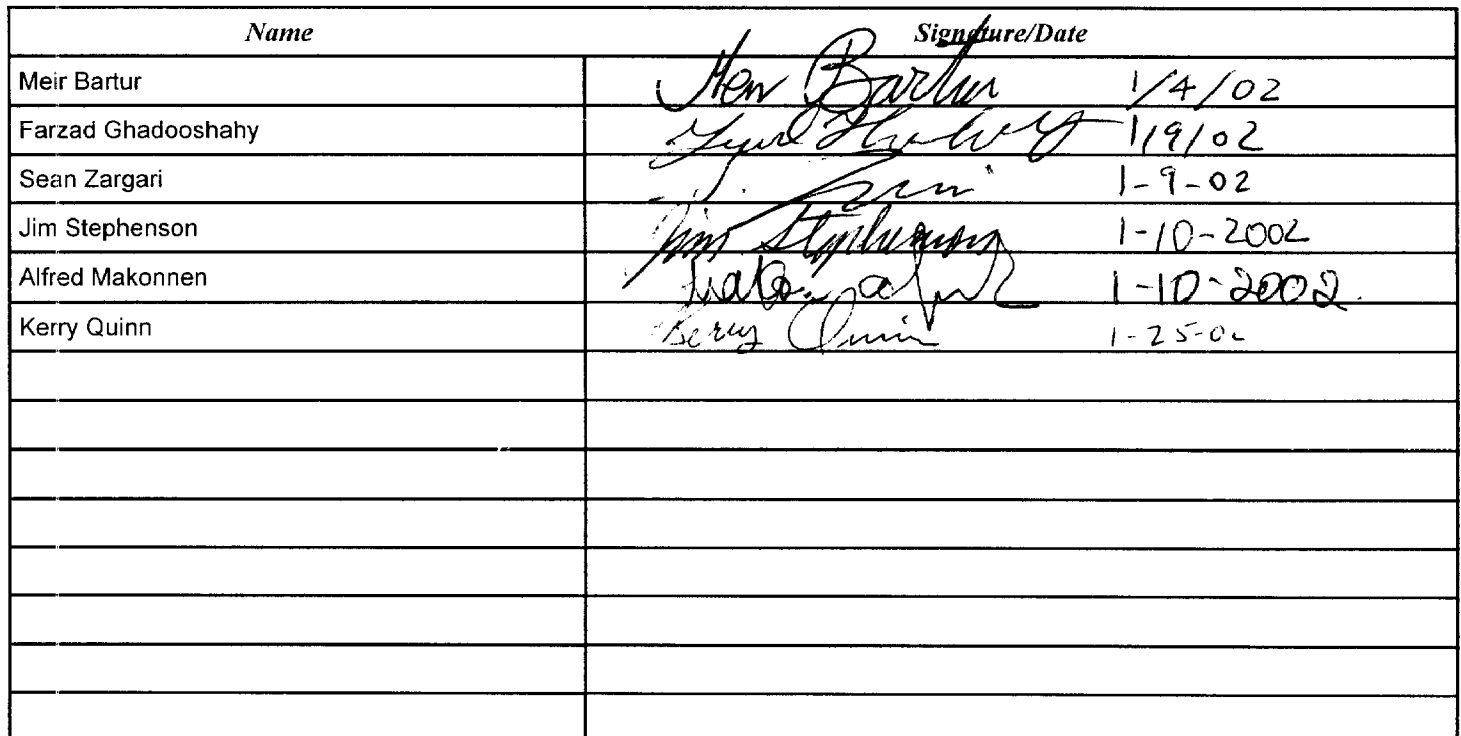 Name Signature/Date
Meir Bartur Meir Bartur 1/4/02
Farzad Ghadooshahy 1/9/02
Sean Zargari 1-9-02
Jim Stephenson Jim Stephenson 1-10-2002
Alfred Makonnen 1-10-2002
Kerry Quinn Kerry Quinn 1-25-02